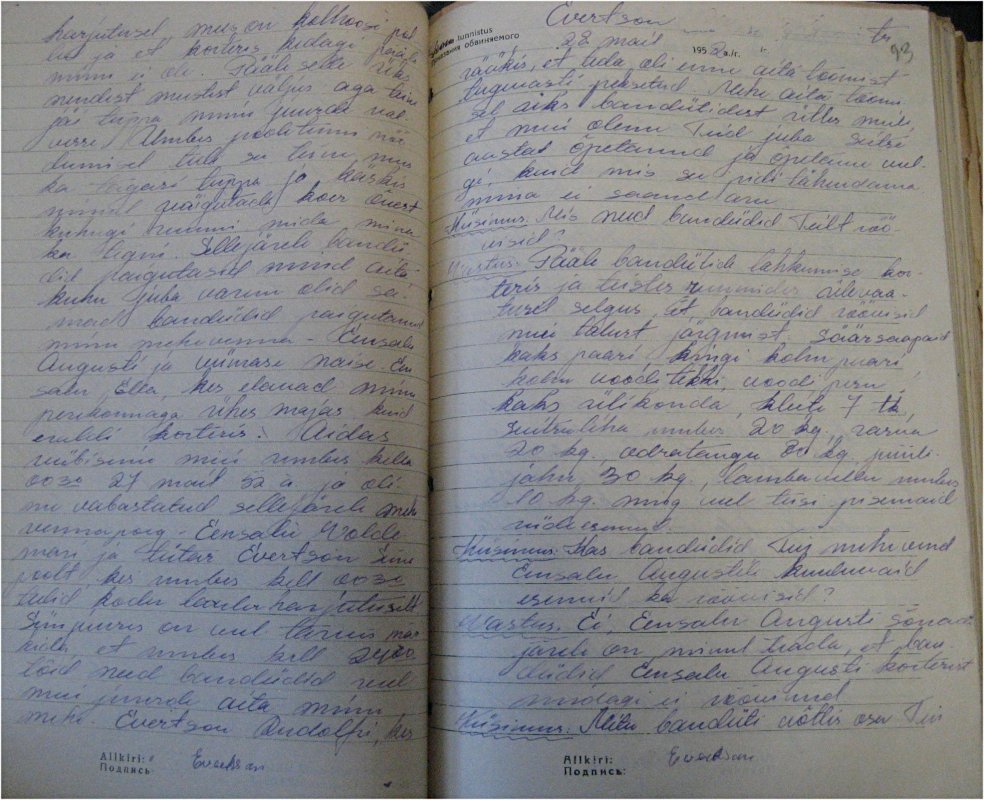 harjutusel, mees on kolhoosi pool
ja et korteris kedagi peale
minu ei ole. Pääle selle üks
nendest meestest väljus aga teine
jäi tuppa minu juurde val-
vesse. Umbes pooletunni möö-
dumisel tuli se teine mees
ka tagasi tuppa ja käskis
minul näigutada koer õuest
kuhugi ruumi mida mina
ka tegin. Sellejäreli bandii-
did paigutasid mind aita
kuhu juba varem olid sa-
mad bandiidid paigutanud
minu mehevenna - Eensalu
Augusti ja viimase naise Een
salu, Ella, kes elavad minu
perekonnaga ühes majas kuid
eraldi korteris. Aidas
viibisime meie umbes kella
0030 27 mail 52 a ja oli-
me vabastatud sellejäreli mehe
vennapoeg - Eensalu Volde-
mari ja tütar Evertson
poolt, kes umbes kell 0030
tulid kodu lauluharjutuselt
Siinjuures on veel tarvis mär-
kida, et umbes kell 2400
tõid need bandiidid veel
meie juurde aita minu
mehe - Evertson Rudolfi, kes
Allkiri:
Подпись:
Evertson
tunnistus
Показания обвиняемого
Evertson
28 mail
195 2 a./г.
93
rääkis, et teda oli enne aita toomist
tugevasti peksetud. Mehe aita toomi-
sel üks bandiitidest ütles meile
et meie oleme Teid juba
austat õpetanud ja õpetame veel-
gi, kuid mis se pidi tähendama
mina ei saanud aru
Küsimus: Mis need bandiidid Teilt röö-
visid?
Vastus: Pääle bandiitide lahkumise kor-
teris ja teistes ruumides ülevaa-
tusel selgus, et, bandiidid röövisid
meie talust järgmist Säärsaapaid
kaks paari kingi kolm paari,
kolm voodi tekki, voodi pesu,
kaks ülikonda, kleite 7 tk,
umbes 20 kg. rasva
20 kg., odratangu kg, püüli-
jahu 30 kg., lambavilla umbes
10 kg. ning veel teisi pisemaid
riideesemeid.
Küsimus: Kas bandiidid Teie mehevend
Eensalu Augustile kuuluvaid
esemeid ka röövisid?
Vastus. Ei, Eensalu Augusti sõnade
järele on minul teada, et ban-
diidid Eensalu Augusti korterist
midagi ei röövinud
Küsimus: Mitu bandiiti võttis osa Teie
Allkiri:
Подпись:
Evertson